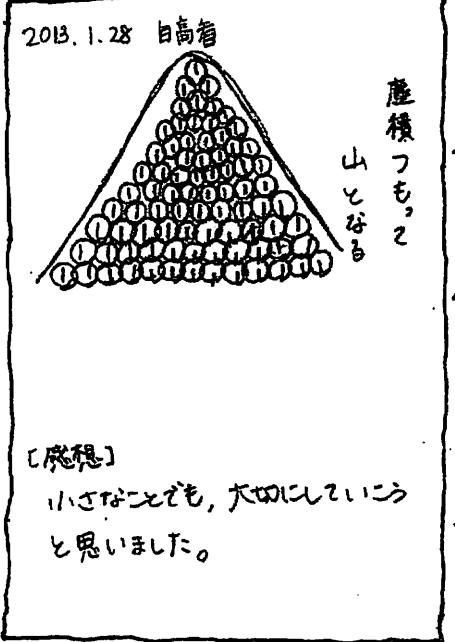 2013.1.28 日高著
塵積つもって
山となる
[感想]
小さなことでも,大切にしていこう
と思いました。